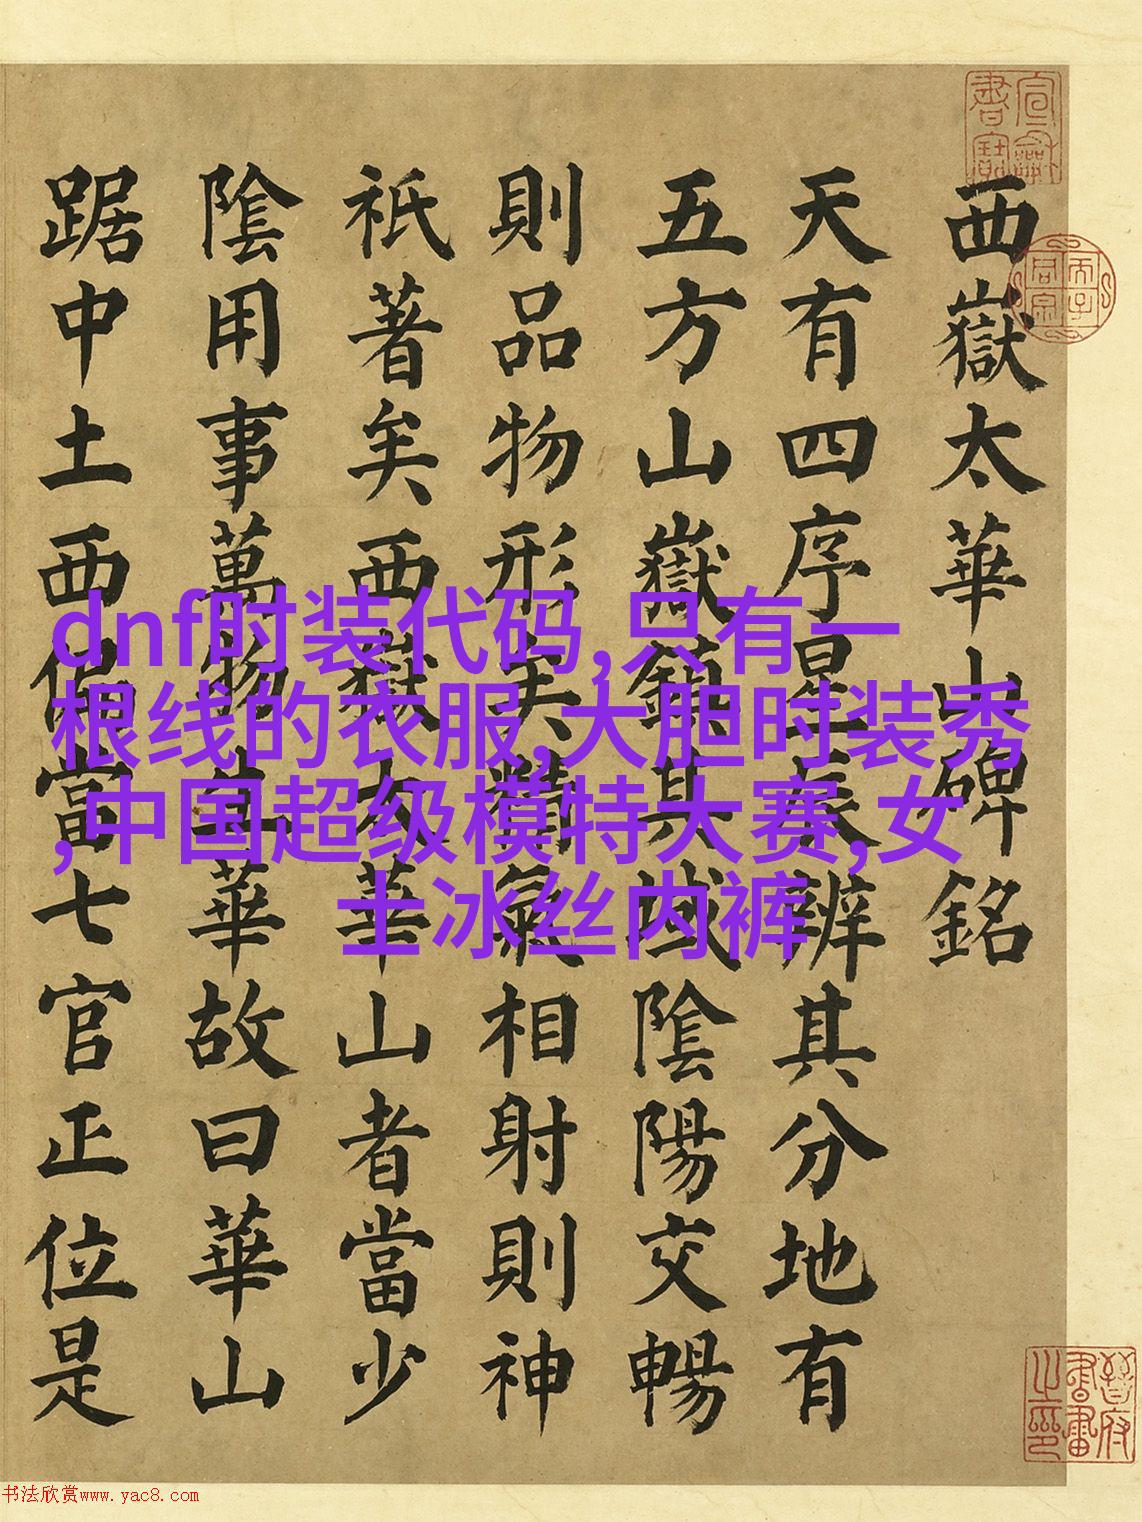 西嶽太華山碑銘
天有四序星辰辨其分地有
五方山嶽鎮其域陰陽交暢
則品物形矣精氣相射則神
祇著矣西嶽太華山者當少
陰用事萬物生華故曰華山
踞中土西偏當七官正位是
dnf时装代码,只有一
根线的衣服,大胆时装秀
,中国超级模特大赛,女
士冰丝内裤
晉府書畫之印
书法欣赏www.yac8.com